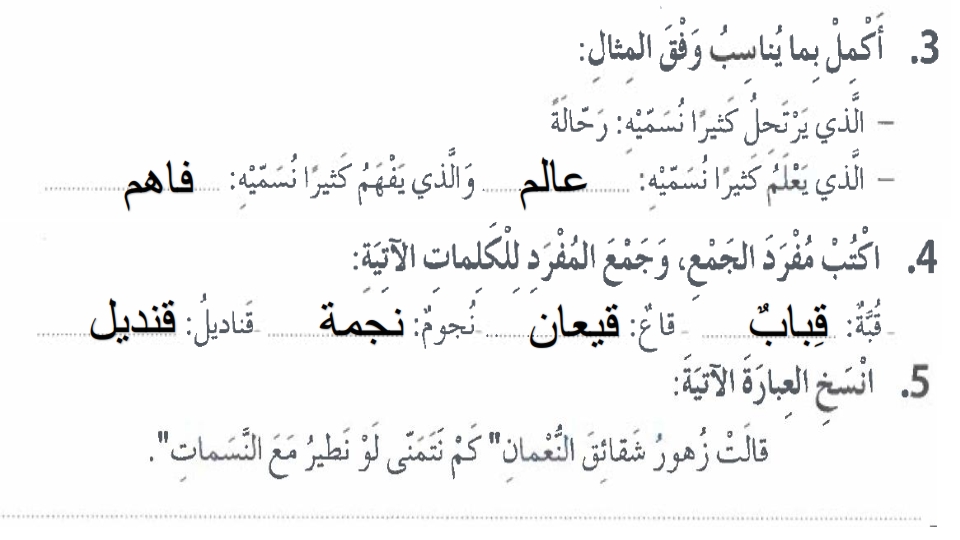 3. أَكْمِلْ بِما يُناسِبُ وَفْقَ المِثالِ:
– الَّذي يَرْتَحِلُ كَثيرًا نُسَمّيْهِ: رَحّالَةً
– الَّذي يَعْلَمُ كَثيرًا نُسَمّيْهِ: عالم وَالَّذي يَفْهَمُ كَثيرًا نُسَمّيْهِ: فاهم
4. اكْتُبْ مُفْرَدَ الجَمْعِ، وَجَمْعَ المُفْرَدِ لِلْكَلِماتِ الآتِيَةِ:
- قُبَّةٌ: قِبابٌ - قاعٌ: قيعان -نُجومٌ: نجمة -قَناديلُ: قنديل
5. انْسَخِ العِبارَةَ الآتِيَةَ:
قالَتْ زُهورُ شَقائِقَ النُّعْمانِ" كَمْ نَتَمَنّى لَوْ نَطيرُ مَعَ النَّسَماتِ".